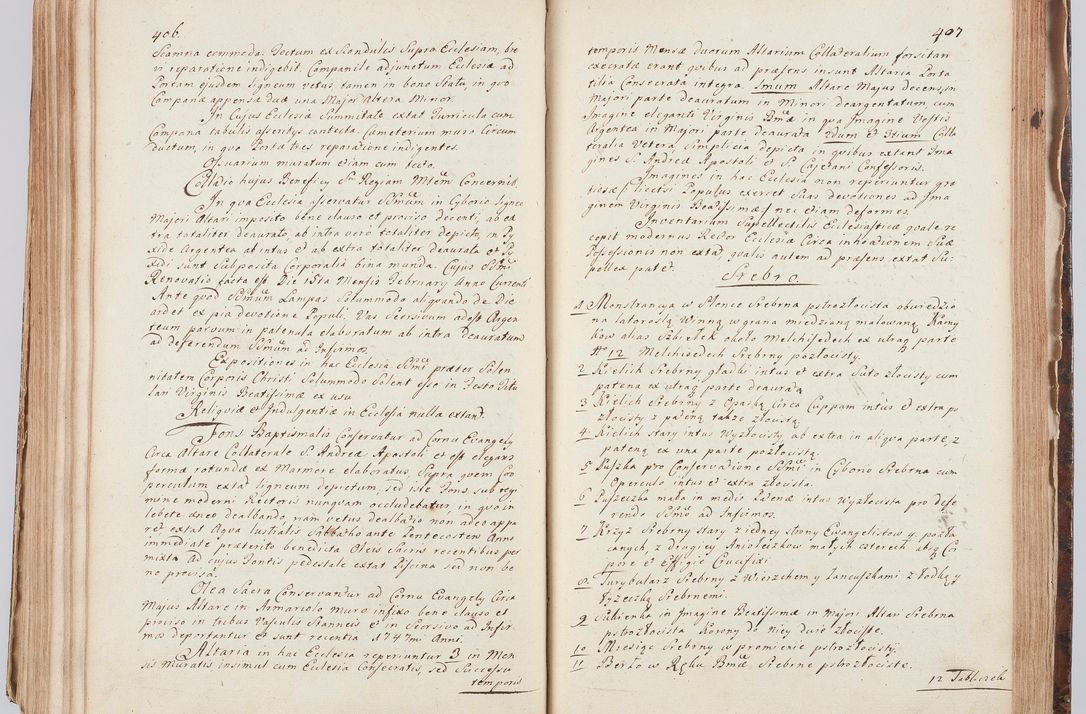 406.
Scamna commoda. Tectum ex Scondulis Supra Ecclesiam, bre
vi reparatione indigebit. Companile adjunctum Ecclesiæ ad
Portam ejusdem ligneum vetus, tamen in bono Statu, in quo
Campanæ appensæ duæ una Major altera Minor.
In Cujus Ecclesiæ Summitate extat Turricula cum
Campana tabulis asseritys contecta. Cæmeterium muro Circum
ductum, in quo Portæ tres reparatione indigentes.
Ossuarium muratum etiam cum tecto.
Collatio hujus Beneficy Sm Regiam Mtem Concernit.
In qua Ecclesia asservatur SSmum in Cyborio ligneo
Majori Altari imposito bene clauso et proviso decenti, ab ex
tra totaliter deaurato, ab intra vero totaliter depicto, in Py
xide Argentea ab intus et ab extra totaliter deaurata et Py
xidi sunt Subposita Corporalia bina munda. Cujus SSmi
Renovatio facta est Die 15ta Mensis February Anno Currenti
Ante quod SSmum Lampas Solummodo aliquando de Die
ardet ex pia devotione Populi. Vas Seorsivum adest Argen
teum parvum in patenula elaboratum ab intra deauratum
ad deferendum SSmum ad Infirmos.
Expositiones in hac Ecclesia SSmi præter Solen
nitatem Corporis Christi Solummodo Solent esse in Festo Titu
lari Virginis Beatissimæ ex usu.
Reliquiæ et Indulgentiæ in Ecclesia nulla extant.
Fons Baptismalis Conservatur ad Cornu Evangely
Circa Altare Collaterale S. Andreæ Apostoli et est elegans
formæ rotundæ ex Marmore elaboratus Supra quem Coo
perculum extat ligneum depictum, sed iste Fons, sub regi
mine moderni Rectoris nunquam occludebatur, in quo in
lebete æneo dealbando, nam vetus dealbatio non adeo appa
ret extat Aqua lustralis Sabbatho ante Pentecosten Anno
immediate præterito benedicta Oleis Sacris recentibus per
mixta ad cujus Fontis pedestale extat Piscina sed non be
ne provisa.
Olea Sacra Conservantur ad Cornu Evangely Circa
Majus Altare in Armariolo muro infixo bene clauso et
proviso in tribus Vasculis Stanneis et in Seorsivo ad Infir
mos deportantur et sunt recentia 1747mi Anni.
Altaria in hac Ecclesia reperiuntur 3 in Men
sis Muratis insimul cum Ecclesia Consecratis, sed Successu
temporis
407
temporis Mensæ duorum Altarium Collateralium forsitan
execratæ erant quibus ad præsens insunt Altaria Porta
tilia Consecrata integra. Imum Altare Majus decens, in
Majori parte deauratum in Minori deargentatum, cum
Imagine eleganti Virginis Bmæ in qua Imagine Vestis
Argentea in Majori parte deaurata 2dum et 3tium Colla
teralia Vetera Simplicia depicta in quibus extant Ima
gines S. Andreæ Apostoli et S. Cajetani Confessoris.
Imagines in hac Ecclesia non reperiuntur gra
tiosæ/: licet Populus exercet Suas devotiones ad Ima
ginem Virginis Beatissimæ/ nec etiam deformes.
Inventarium Supellectilis Ecclesiasticæ quale re
cepit modernus Rector Ecclesiæ Circa inhoationem Suæ
Possessionis non extat, qualis autem ad præsens extat Su-
pellex patet.
Srebro.
1 Monstrancya w Słonce Srebrna pstrozłocista obwiedzio
na latoroslą Winną w grana miedzianą malowaną Kamy
kow alias Szkiełek około Melchisedech ex utraq parte
No 12 Melchisedech Srebrny pozłocisty.
2 Kielich Srebrny gładki intus et extra Suto złocisty cum
patena ex utraq parte deaurata
3 Kielich Srebrny z Opaską Circa Cuppam intus et extra po
złocisty z pateną także złocistą
4 Kielich Stary intus Wyzłocisty, ab extra in aliqua parte, z
pateną ex una parte pozłocistą
5 Puszka pro Conservatione SSmi in Cyborio Srebrna cum
Operculo intus et extra złocista.
6 Puszeczka mała in medio Patenæ intus Wyzłocista pro defe
rendo SSmo ad Infirmos.
7 Krzyż Srebrny Stary z iedney strony Ewangelistow 4. pozła
canych, z drugiey Aniołeczkow małych czterech absq Cor
pore et Effigie Crucifixi.
8. Turybularz Srebrny z Wierzchem y łancuszkami z łodką y
łyżeczką Srebrnemi.
9 Sukienka in Imagine Beatissimæ in Majori Altari Srebrna
pstrozłocista Korony do niey dwie złociste.
10 Miesiąc Srebrny w promienie pstrozłocisty.
11 Berło w Ręku Bmæ Srebrne pstrozłociste.
12 Tabliczek